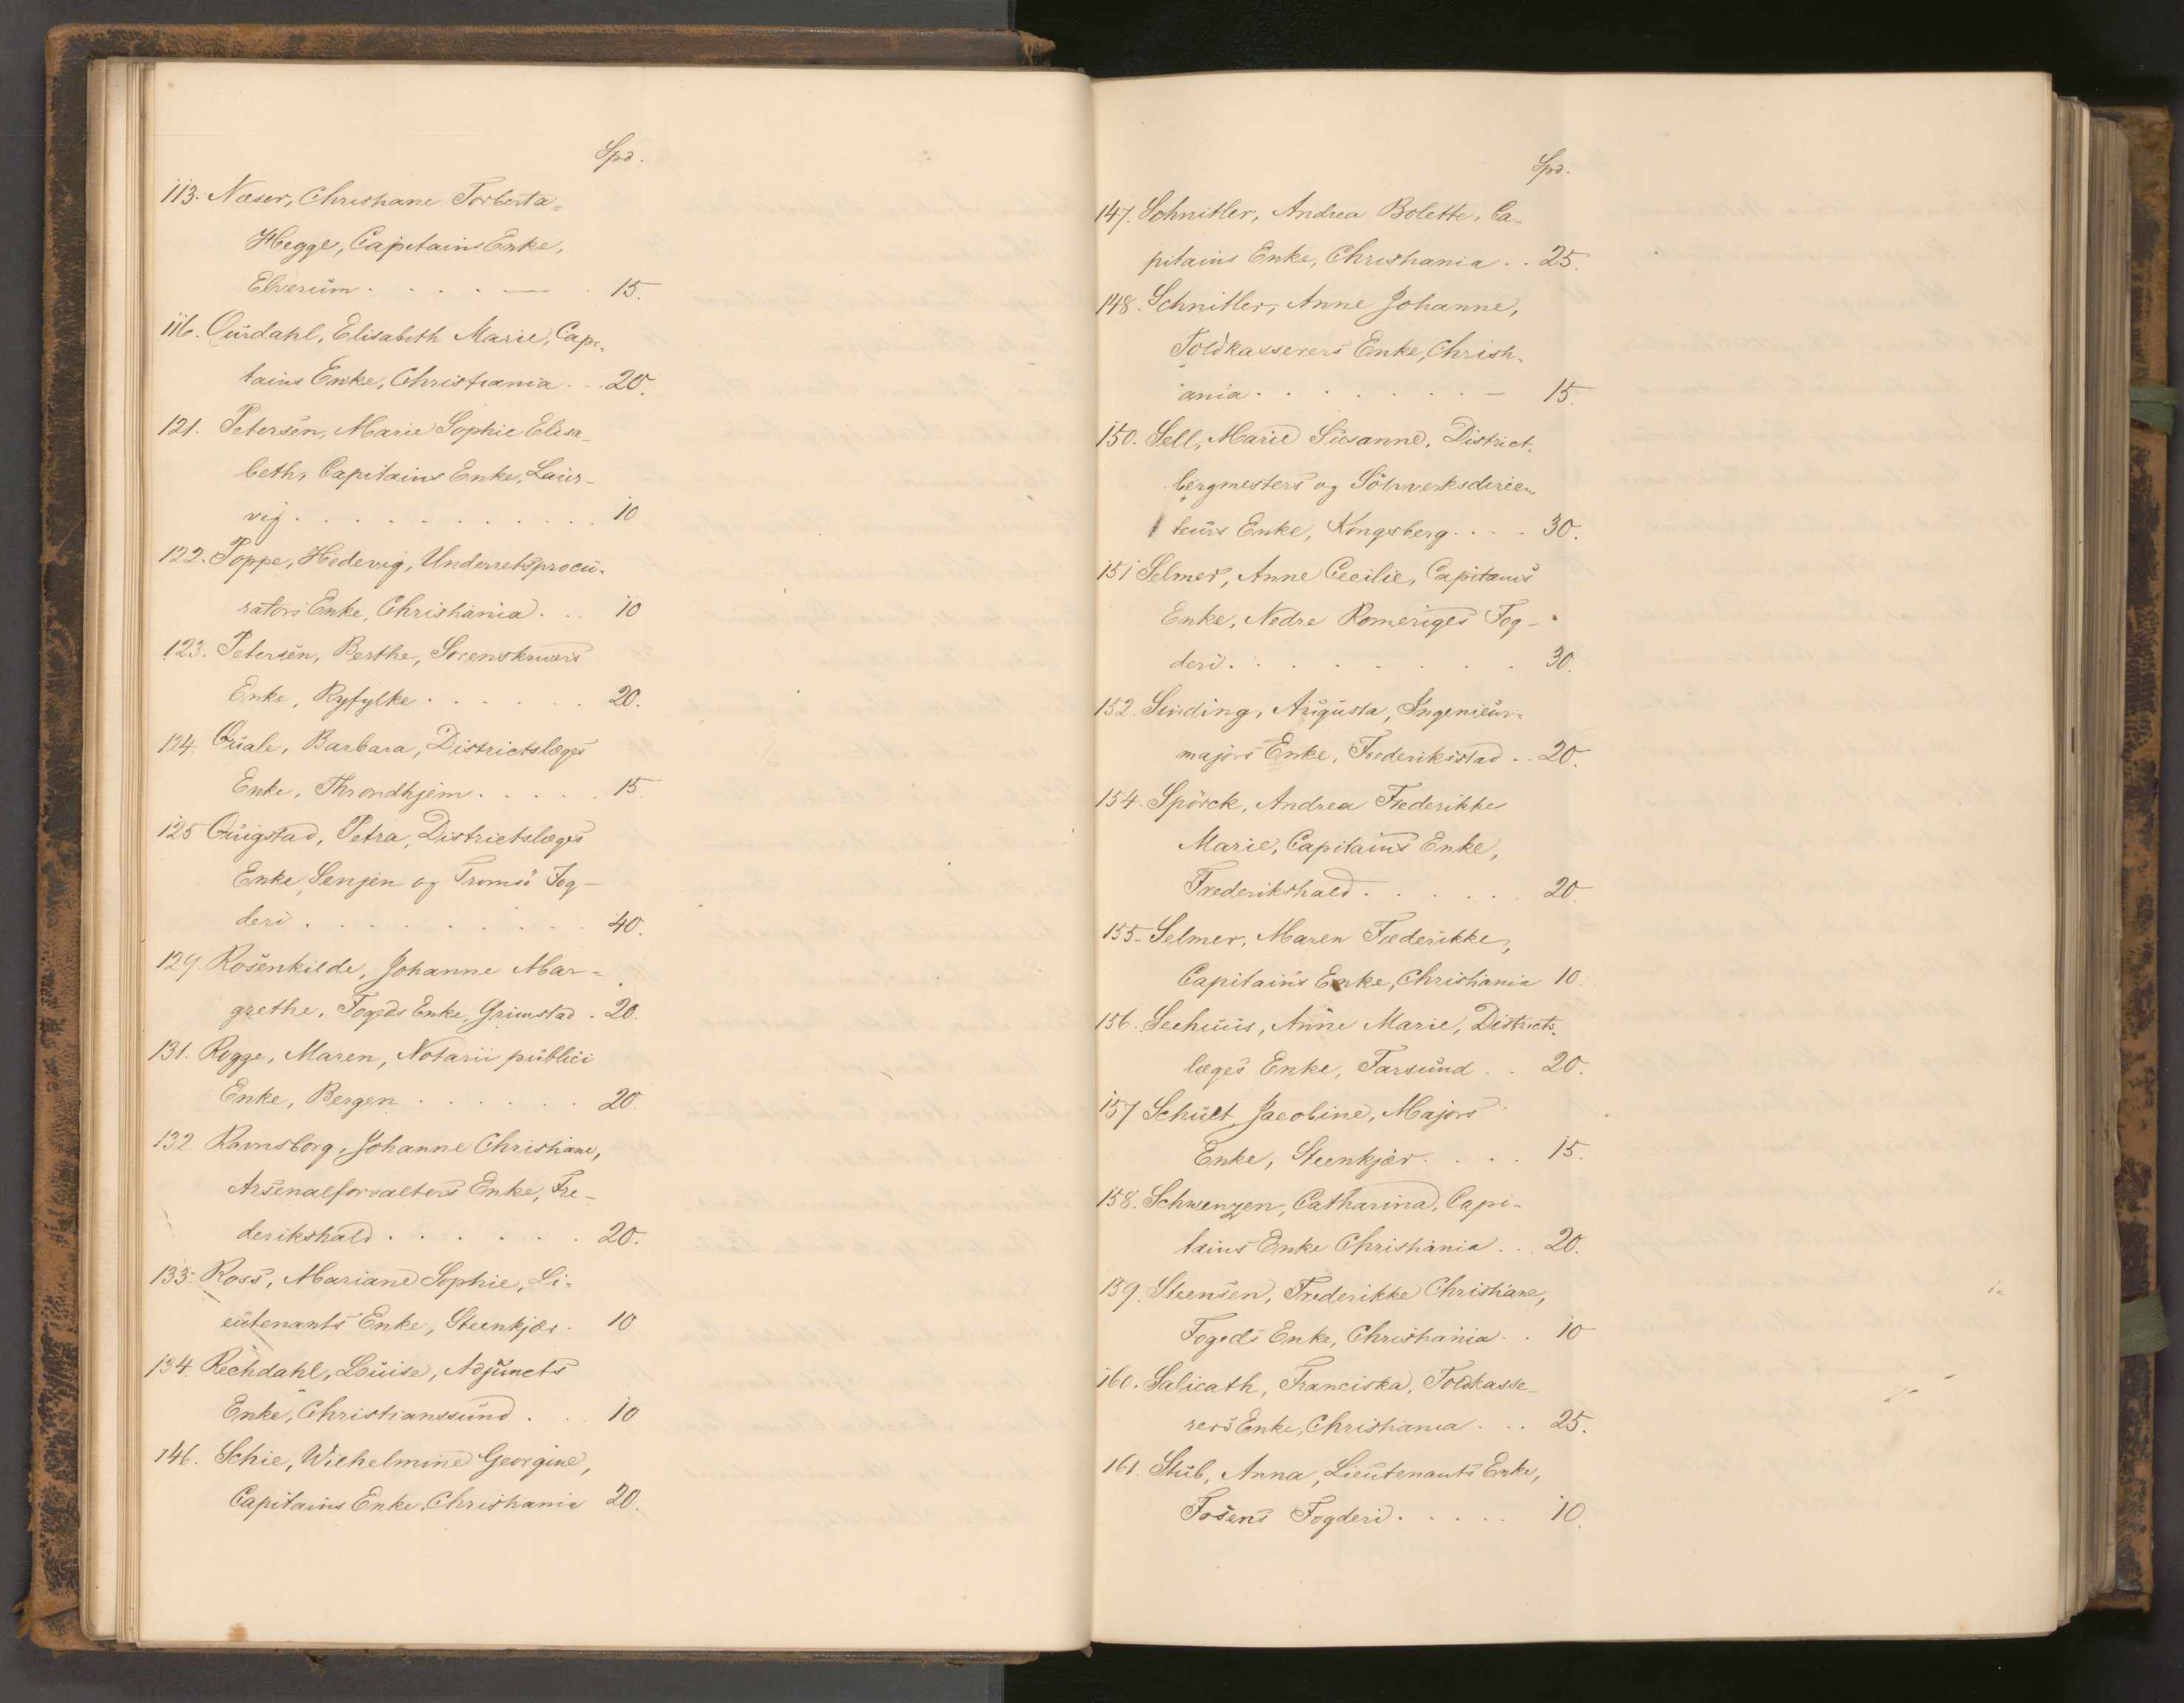 Spd.
113. Næser, Christiane Torberta-
Hegge, Capitains Enke,
Elverum . . . . . 15.
116. Ourdahl, Elisabeth Marie, Capi-
tains Enke, Christiania . . 20.
121. Petersen, Marie Sophie Elisa-
beth, Capitains Enke, Laur-
vig . . . . . . . . . . . 10
122. Poppe, Hedevig, Underretsprocu-
rators Enke, Christiania . . . 10
123. Petersen, Berthe, Sorenskrivers
Enke, Ryfylke . . . . . . 20.
124. Quale, Barbara, Districtslæges
Enke, Throndhjem . . . . . 15.
125 Quigstad, Petra, Districtslæges
Enke, Senjen og Tromsö Fog-
deri . . . . . . . . . . 40.
129. Rosenkilde, Johanne Mar-
grethe, Fogeds Enke, Grimstad . 20.
131. Rygge, Maren, Notarii publici
Enke, Bergen . . . . . . 20.
132 Ravnsborg, Johanne Christiane,
Arsenalforvalters Enke, Fre-
derikshald . . . . . . 20.
133. Ross, Mariane Sophie, Li-
eutenants Enke, Steenkjær . 10
134. Rechdahl, Louise, Adjuncts
Enke, Christianssund . . . 10
146. Schie, Wilhelmine Georgine,
Capitains Enke, Christiania 20.
Spd.
147. Schnitler, Andrea Bolette, Ca-
pitains Enke, Christiania . . 25.
148. Schnitler, Anne Johanne,
Toldkasserers Enke, Christi-
ania . . . . . . . . 15.
150. Sell, Marie Susanne, District-
bergmesters og Sölvverksdirec-
teurs Enke, Kongsberg . . . 30.
151 Selmer, Anne Cecilie, Capitains
Enke, Nedre Romeriges Fog-
deri . . . . . . . . . 30.
152. Sinding, Augusta, Ingenieur-
majors Enke, Frederiksstad . . 20.
154. Spörck, Andrea Frederikke
Marie, Capitains Enke,
Frederikshald . . . . . 20.
155. Selmer, Maren Frederikke,
Capitains Enke, Christiania 10.
156. Seehuus, Anne Marie, Districts-
læges Enke, Farsund . . 20.
157 Schult, Jacobine, Majors
Enke, Steenkjær . . . . 15.
158. Schwenzen, Catharina, Capi-
tains Enke Christiania . . 20.
159. Steensen, Frederikke Christiane,
Fogeds Enke, Christiania . . 10
160. Salicath, Franciska, Toldkasse-
rers Enke, Christiania . . . 25.
161. Stub, Anna, Lieutenants Enke,
Fosens Fogderi . . . . . 10.